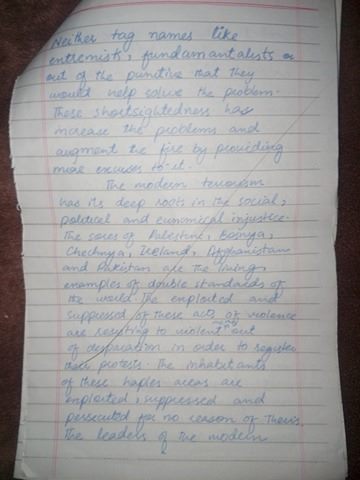 Neither tag names like
entremists, fundamantalists or
out of the punitive that they
would help solve the problem.
These shortsightedness has
increase the problems and
augment the fire by providing
more excuses to it.
The modern terrorism
has its deep roots in the social,
political and eunomical injustice.
The sores of Palestine, Bosnya,
Chechnya, Ireland, Afghanistan
and Pakistan are the living
examples of double standards of
the world. The enploited and
suppressed of these acts of violence
are resorting to violent out
of desparation in order to register
their protests. The inhabitants
of these haples areas are
enploited, suppressed and
persecuted for no reason of theirs.
The leaders of the modern